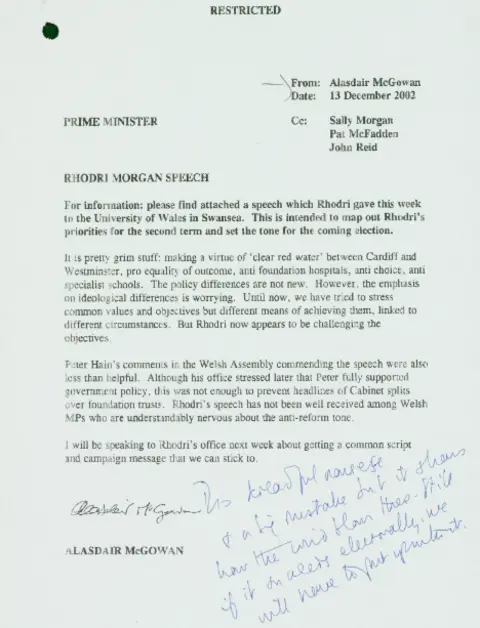 RESTRICTED
From: Alasdair McGowan
Date: 13 December 2002
PRIME MINISTER
Cc: Sally Morgan
Pat McFadden
John Reid
RHODRI MORGAN SPEECH
For information: please find attached a speech which Rhodri gave this week
to the University of Wales in Swansea. This is intended to map out Rhodri's
priorities for the second term and set the tone for the coming election.
It is pretty grim stuff: making a virtue of 'clear red water' between Cardiff and
Westminster, pro equality of outcome, anti foundation hospitals, anti choice, anti
specialist schools. The policy differences are not new. However, the emphasis
on ideological differences is worrying. Until now, we have tried to stress
common values and objectives but different means of achieving them, linked to
different circumstances. But Rhodri now appears to be challenging the
objectives.
Peter Hain's comments in the Welsh Assembly commending the speech were also
less than helpful. Although his office stressed later that Peter fully supported
government policy, this was not enough to prevent headlines of Cabinet splits
over foundation trusts. Rhodri's speech has not been well received among Welsh
MPs who are understandably nervous about the anti-reform tone.
I will be speaking to Rhodri's office next week about getting a common script
and campaign message that we can stick to.
Alasdair McGowan
ALASDAIR McGOWAN
This dreadful nonsense
& a big mistake but it shows
how the wind blows there. Still
if it succeeds electorally, we
will have to put up with it.